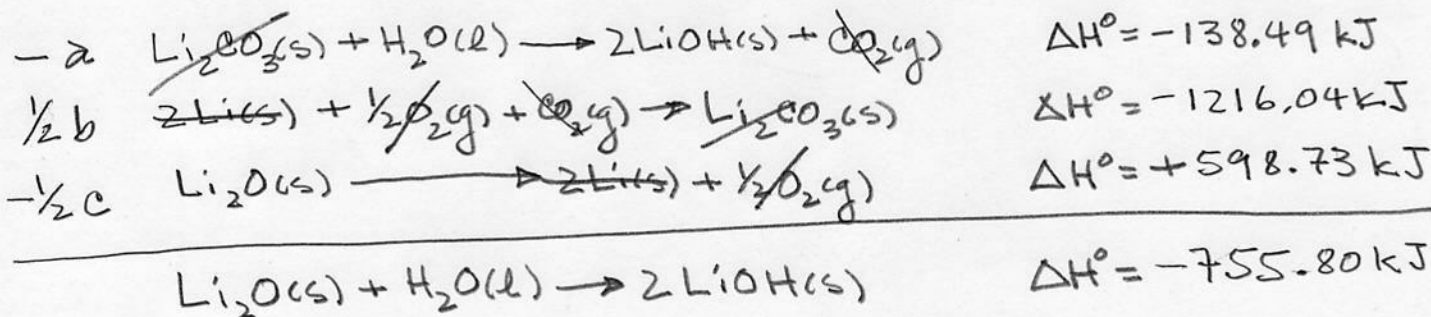 -a Li₂CO₃(s) + H₂O(l) → 2LiOH(s) + CO₂(g) ΔH° = -138.49 kJ
½b 2Li(s) + ½O₂(g) + CO₂(g) → Li₂CO₃(s) ΔH° = -1216.04 kJ
-½c Li₂O(s) → 2Li(s) + ½O₂(g) ΔH° = +598.73 kJ
Li₂O(s) + H₂O(l) → 2LiOH(s) ΔH° = -755.80 kJ